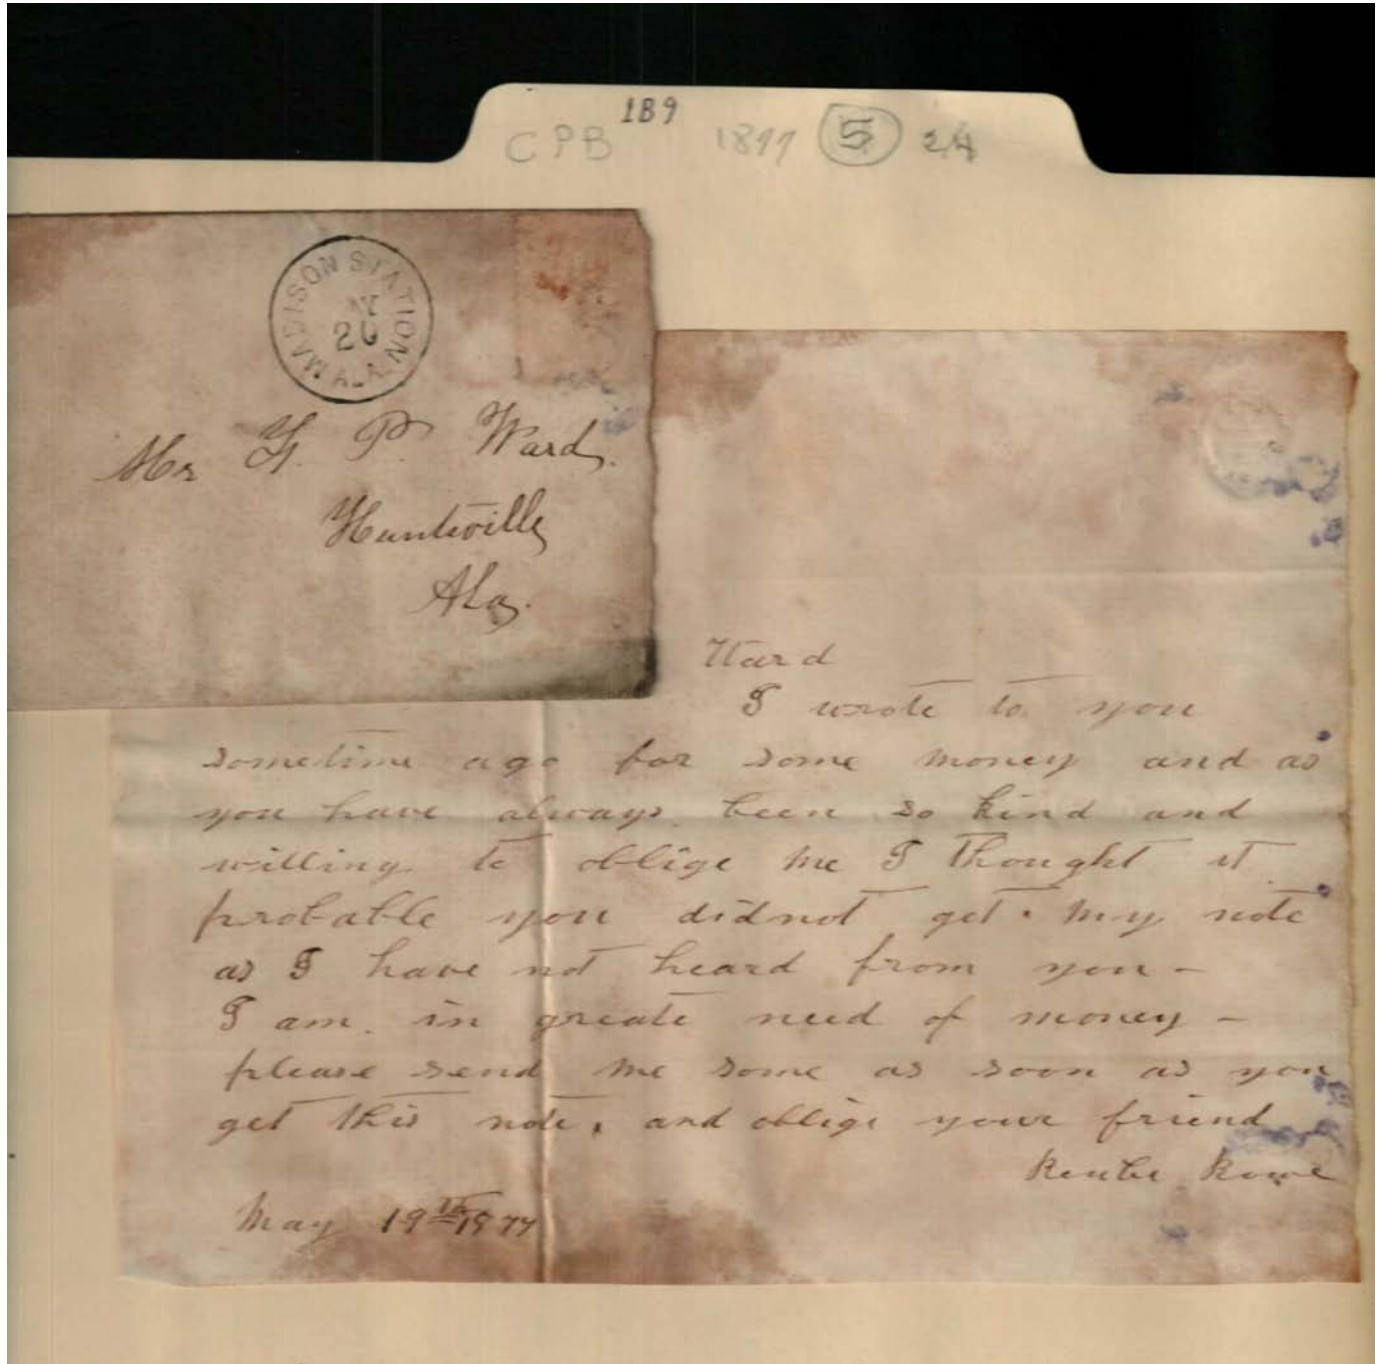 1B9
CPB 1877 5 2A
MADISON STATION
20
ALA.
Mr G. P. Ward.
Huntsville
Ala.
Ward
I wrote to you
sometime ago for some money and as
you have always been so kind and
willing to oblige me I thought it
probable you didnot get my note
as I have not heard from you -
I am in greate need of money -
please send me some as soon as you
get this note, and oblige your friend
May 19th 1877